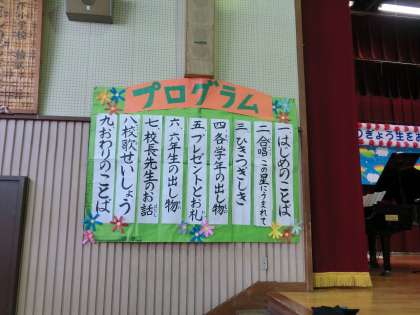 プログラム
一はじめのことば
二合唱「この星にうまれて」
三ひきつぎしき
四各学年の出し物
五プレゼントとお礼
六六年生の出し物
七校長先生のお話
八校歌せいしょう
九おわりのことば